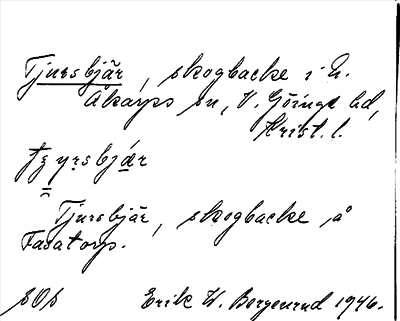 Tjursbjär, skogbacke i N.
Åkarps sn, V. Göinge hd,
Krist. l.
Tjursbjär, skogbacke å
Fasatorp.
sOp Erik W. Bergenrud 1946.